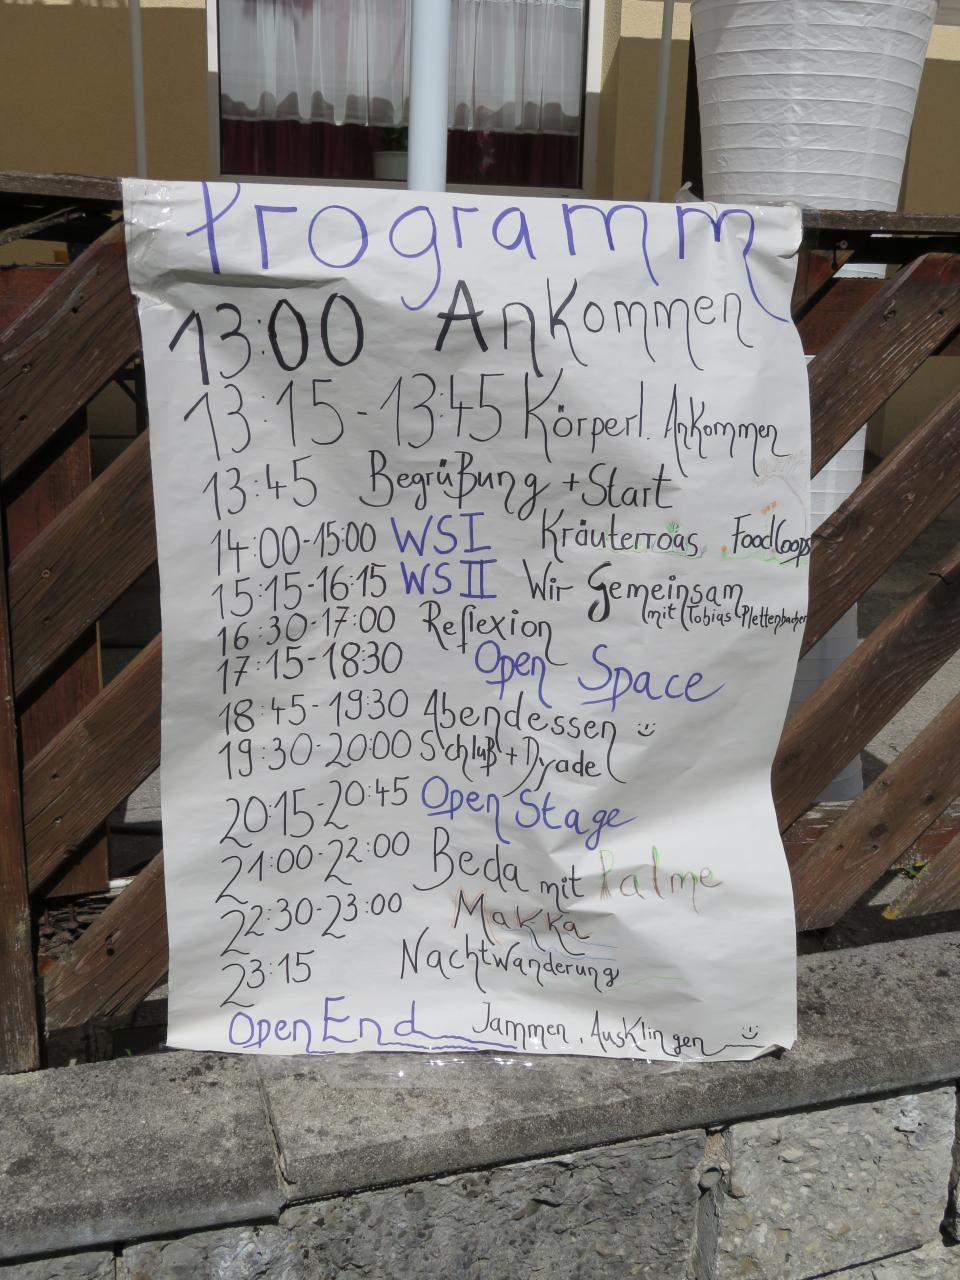 Programm
13:00 Ankommen
13:15-13:45 Körperl. Ankommen
13:45 Begrüßung + Start
14:00-15:00 WSI Kräuterroas, FoodCoops
15:15-16:15 WSII Wir Gemeinsam
mit (Tobias Plettenbacher
16:30-17:00 Reflexion
17:15-18:30 Open Space
18:45-19:30 Abendessen :)
19:30-20:00 Schluß + Dyade
20:15-20:45 Open Stage
21:00-22:00 Beda mit Palme
22:30-23:00 Makka
23:15 Nachtwanderung
Open End Jammen, Ausklingen :)